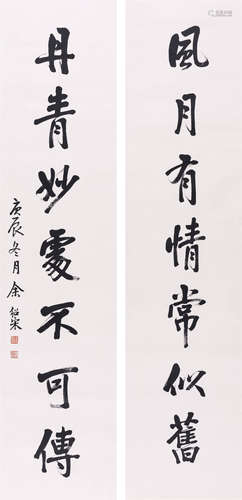 風月有情常似舊
丹青妙處不可傳
庚辰冬月余紹宋